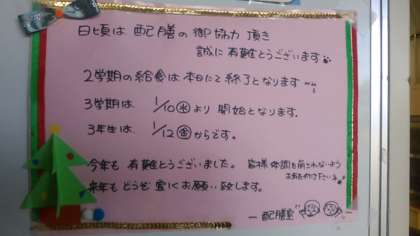 日頃は 配膳の 御協力 頂き
誠に 有難とうございます
2学期の給食は 本日にて 終了となります
3学期は 1/10(水)より 開始となります.
3年生は. 1/12(金)からです。
今年も 有難とうございました。 皆様 体調を崩されないよう
お気をつけ下さい
来年も どうぞ 宜しくお願い致します。
ー配膳室ー